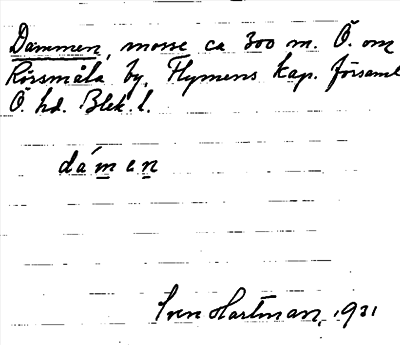 Dammen, mosse ca 300 m. Ö. om
Rörsmåla by, Flymens kap. församl
Ö. hd. Blek. l.
dámen
Sven Hartman, 1931